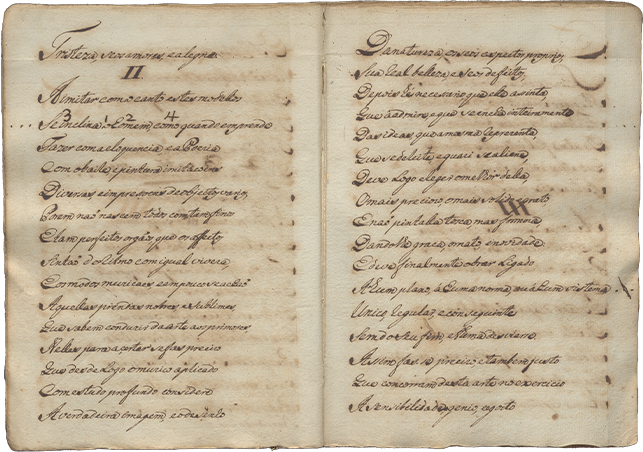 Tristeza, seos amores, e alegria.
II
A imitar como canto estes modelos
3 1 2 4
Se inclina o Homem, como quando emprende
Fazer com a eloquencia, e a Poesia
Com o baile, e pintura imitacoens
Diversas e impressoens de objectos varios,
Porem nao nascem todos com tam finos
E tam perfeitos orgãos, que os affectos
Sintaõ do Ritmo com igual viveza
E os modos municaes, e
Aquellas prendas nobres, e sublimes,
Que sabem conduzir da arte aos primores
Nellas para acertar se fas preciso
Que desde logo o muzico aplicado
Com estudo profundo considere
A verdadeira imagem, e o dezenho
Da natureza, e seos aspectos proprios,
Sua Real belleza, e seos defeitos,
Depois he necessario que elle a sinta,
Que a admire, e que se encha inteiramente
Das ideas, que a mesma lhe prezente,
Que se deleite, e quazi se aliene,
Deve logo eleger o melhor della,
O mais precioso, o mais e grato
III
E naõ pintalla tosca, mas formoza
Dandolhe graça, ornato, e novidade
E deve finalmente obrar ligado
A hum plano, a huma norma, ou a hum sistema
Unico, regular, e consequente
Sem o seu fim, e thema
Assim fas se preciso, e tambem justo
Que concorrem desta arte no exercicio
A sensibilidade, genio, e gosto